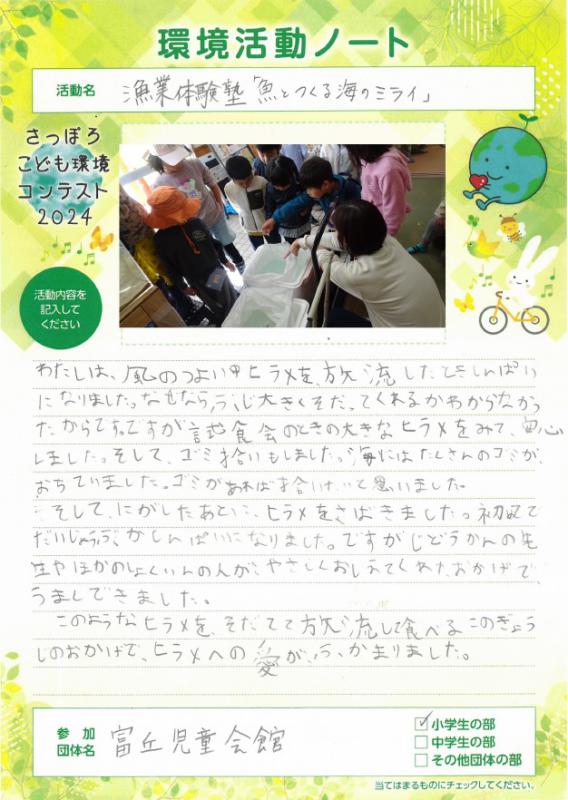 環境活動ノート
活動名
漁業体験塾「魚とつくる海のミライ」
さっぽろ
こども環境
コンテスト
2024
活動内容を
記入して
ください
わたしは、風のつよい中ヒラメを、放流したときしんぱい
になりました。なぜなら、ぶじ大きくそだってくれるかわからなかっ
たからです。ですが試食会のときの大きなヒラメをみて、安心
しました。そして、ゴミ拾いもしました。海にはたくさんのゴミが、
おちていました。ゴミがあれば拾いたいと思いました。
そして、にがしたあとに、ヒラメをさばきました。初めてで
だいじょうぶ、かしんぱいになりました。ですがじどうかんの先
生やほかのしょくいんの人が、やさしくおしえてくれたおかげで
うまくできました。
このようなヒラメを、そだてて放流して食べるこのぎょう
じのおかげで、ヒラメへの愛が、ふかまりました。
参加
団体名
富丘児童会館
小学生の部
中学生の部
その他団体の部
当てはまるものにチェックしてください。